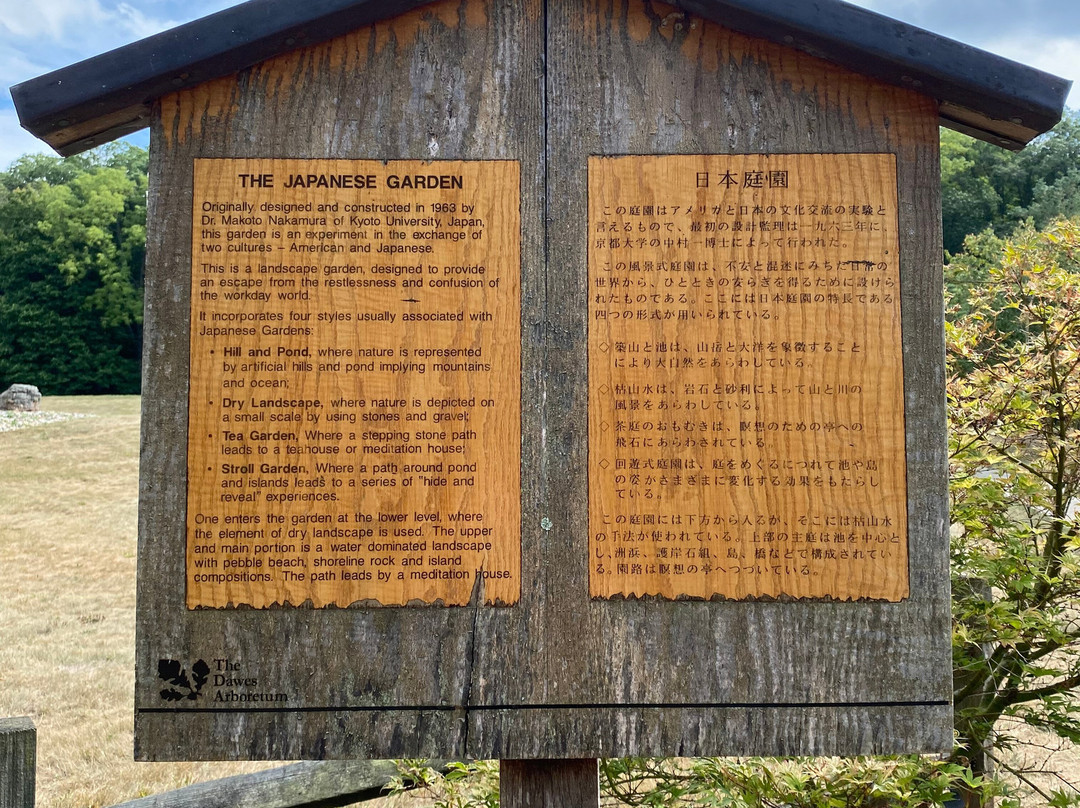 THE JAPANESE GARDEN
Originally designed and constructed in 1963 by
Dr. Makoto Nakamura of Kyoto University, Japan,
this garden is an experiment in the exchange of
two cultures – American and Japanese.
This is a landscape garden, designed to provide
an escape from the restlessness and confusion of
the workday world.
It incorporates four styles usually associated with
Japanese Gardens:
• Hill and Pond, where nature is represented
by artificial hills and pond implying mountains
and ocean;
• Dry Landscape, where nature is depicted on
a small scale by using stones and gravel;
• Tea Garden, Where a stepping stone path
leads to a teahouse or meditation house;
• Stroll Garden, Where a path around pond
and islands leads to a series of "hide and
reveal" experiences.
One enters the garden at the lower level, where
the element of dry landscape is used. The upper
and main portion is a water dominated landscape
with pebble beach, shoreline rock and island
compositions. The path leads by a meditation house.
日本庭園
この庭園はアメリカと日本の文化交流の実験と
言えるもので、最初の設計監理は一九六三年に、
京都大学の中村一博士によって行われた。
この風景式庭園は、不安と混迷にみちた日常の
世界から、ひとときの安らぎを得るために設けら
れたものである。ここには日本庭園の特長である
四つの形式が用いられている。
◇築山と池は、山岳と大洋を象徴すること
により大自然をあらわしている。
◇枯山水は、岩石と砂利によって山と川の
風景をあらわしている。
◇茶庭のおもむきは、瞑想のための亭への
飛石にあらわされている。
◇回遊式庭園は、庭をめぐるにつれて池や島
の姿がさまざまに変化する効果をもたらし
ている。
この庭園には下方から入るが、そこには枯山水
の手法が使われている。上部の主庭は池を中心と
し、洲浜、護岸石組、島、橋などで構成されてい
る。園路は瞑想の亭へつづいている。
The
Dawes
Arboretum